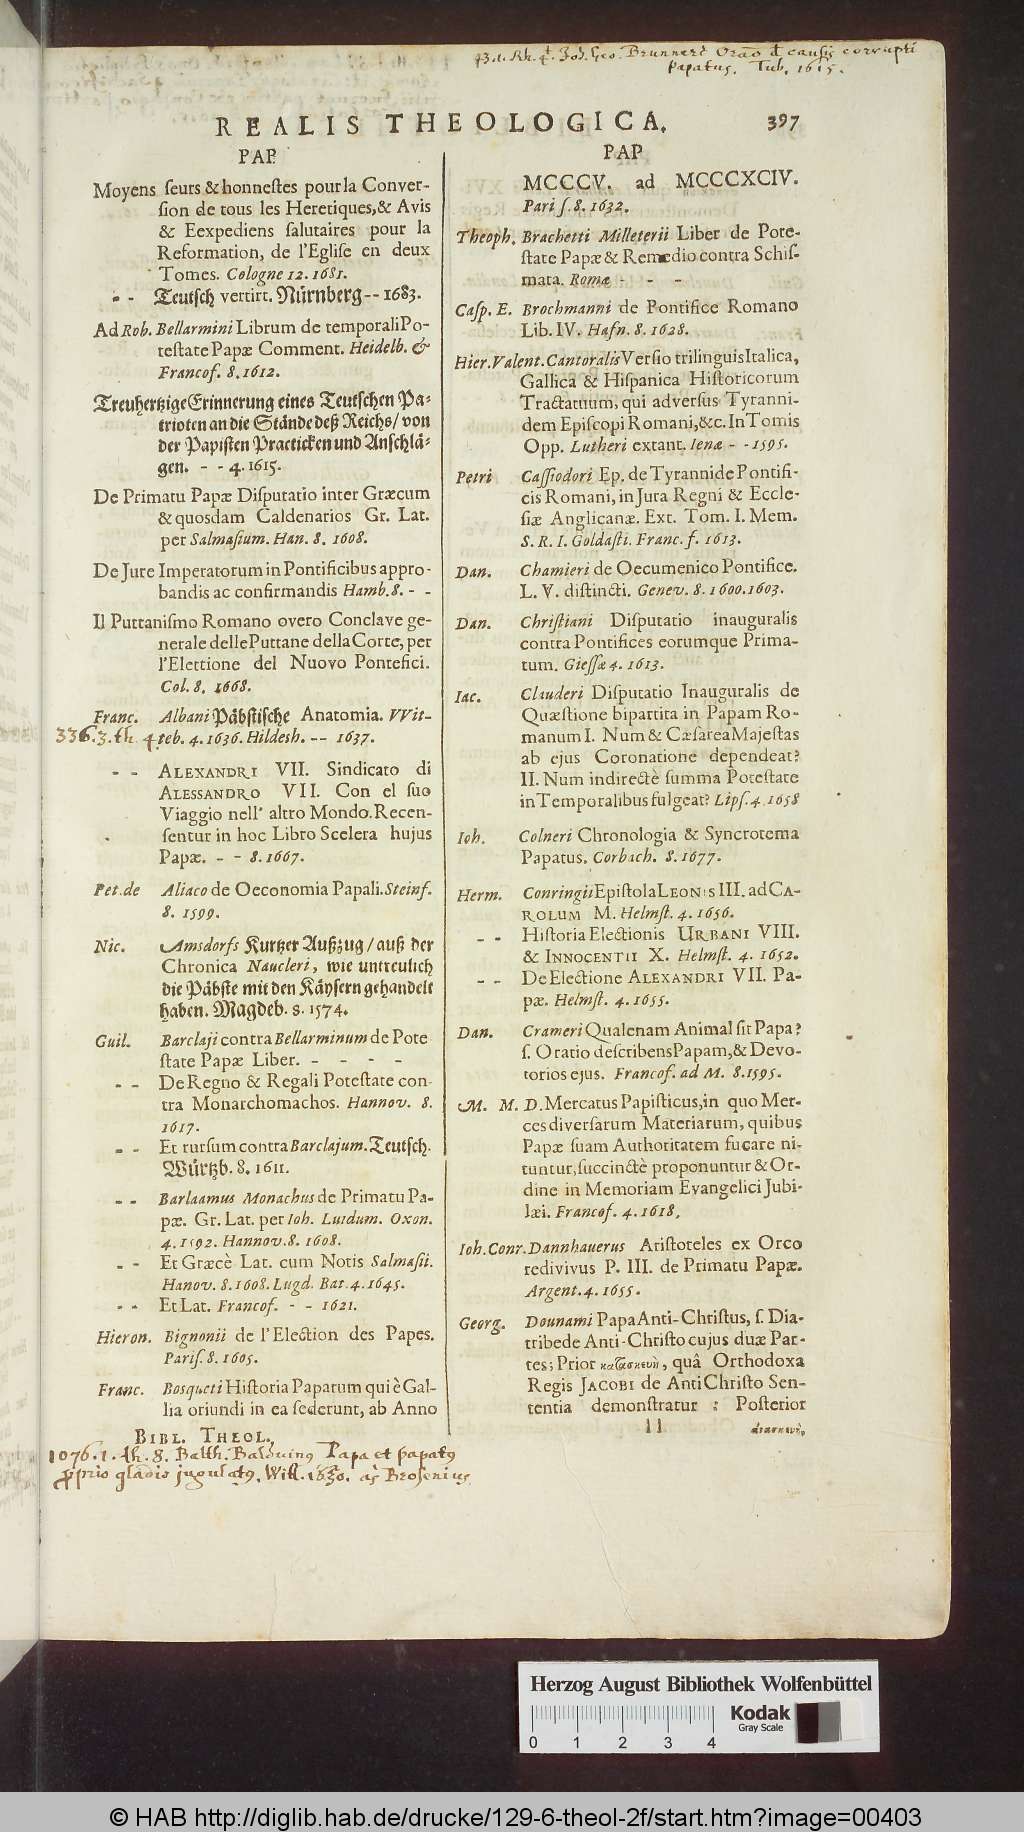 Brunneri causis corrupti
papatus. Tub. 1615.
REALIS THEOLOGICA. 397
PAP.
Moyens seurs & honnestes pour la Conver-
sion de tous les Heretiques, & Avis
& Eexpediens salutaires pour la
Reformation, de l'Eglise en deux
Tomes. Cologne 12. 1681.
- - Teutsch vertirt. Nürnberg -- 1683.
Ad Rob. Bellarmini Librum de temporali Po-
testate Papæ Comment. Heidelb. &
Francof. 8. 1612.
Treuhertzige Erinnerung eines Teutschen Pa-
trioten an die Stände deß Reichs/ von
der Papisten Practicken und Anschlä-
gen. - - 4. 1615.
De Primatu Papæ Disputatio inter Græcum
& quosdam Caldenarios Gr. Lat.
per Salmasium. Han. 8. 1608.
De Jure Imperatorum in Pontificibus appro-
bandis ac confirmandis Hamb. 8. - -
Il Puttanismo Romano overo Conclave ge-
nerale delle Puttane della Corte, per
l'Elettione del Nuovo Pontefici.
Col. 8. 1668.
Franc. Albani Päbstische Anatomia. VVit-
336. 3. th. 4. teb. 4. 1636. Hildesh. -- 1637.
- - ALEXANDRI VII. Sindicato di
ALESSANDRO VII. Con el suo
Viaggio nell' altro Mondo. Recen-
sentur in hoc Libro Scelera hujus
Papæ. - - 8. 1667.
Pet. de Aliaco de Oeconomia Papali. Steinf.
8. 1599.
Nic. Amsdorfs Kurtzer Außzug/ auß der
Chronica Naucleri, wie untreulich
die Päbste mit den Käysern gehandelt
haben. Magdeb. 8. 1574.
Guil. Barclaji contra Bellarminum de Pote
state Papæ Liber. - - - -
- - De Regno & Regali Potestate con-
tra Monarchomachos. Hannov. 8.
1617.
- - Et rursum contra Barclajum. Teutsch.
Würtzb. 8. 1611.
- - Barlaamus Monachus de Primatu Pa-
pæ. Gr. Lat. per Ioh. Luidum. Oxon.
4. 1592. Hannov. 8. 1608.
- - Et Græcè Lat. cum Notis Salmasii.
Hanov. 8. 1608. Lugd. Bat. 4. 1645.
- - Et Lat. Francof. - - 1621.
Hieron. Bignonii de l'Election des Papes.
Paris. 8. 1605.
Franc. Bosqueti Historia Paparum qui è Gal-
lia oriundi in ea sederunt, ab Anno
BIBL. THEOL.
1076. 1. th. 8. Balth. Balduinus Papa et papatus
proprio gladio jugulatus. Witt. 1630. Brosenius
PAP
MCCCV. ad MCCCXCIV.
Pari s. 8. 1632.
Theoph. Brachetti Milleterii Liber de Pote-
state Papæ & Remedio contra Schis-
mata. Romæ - - -
Casp. E. Brochmanni de Pontifice Romano
Lib. IV. Hafn. 8. 1628.
Hier. Valent. Cantoralis Versio trilinguis Italica,
Gallica & Hispanica Historicorum
Tractatuum, qui adversus Tyranni-
dem Episcopi Romani, &c. In Tomis
Opp. Lutheri extant. Ienæ - - 1595.
Petri Cassiodori Ep. de Tyrannide Pontifi-
cis Romani, in Jura Regni & Eccle-
siæ Anglicanæ. Ext. Tom. I. Mem.
S. R. I. Goldasti. Franc. f. 1613.
Dan. Chamieri de Oecumenico Pontifice.
L. V. distincti. Genev. 8. 1600. 1603.
Dan. Christiani Disputatio inauguralis
contra Pontifices eorumque Prima-
tum. Giessæ 4. 1613.
Iac. Clauderi Disputatio Inauguralis de
Quæstione bipartita in Papam Ro-
manum I. Num & Cæsarea Majestas
ab ejus Coronatione dependeat?
II. Num indirectè summa Potestate
in Temporalibus fulgeat? Lips. 4. 1658
Ioh. Colneri Chronologia & Syncrotema
Papatus. Corbach. 8. 1677.
Herm. Conringii Epistola LEONIS III. ad CA-
ROLUM M. Helmst. 4. 1656.
- - Historia Electionis URBANI VIII.
& INNOCENTII X. Helmst. 4. 1652.
- - De Electione ALEXANDRI VII. Pa-
pæ. Helmst. 4. 1655.
Dan. Crameri Qualenam Animal sit Papa?
s. Oratio describens Papam, & Devo-
torios ejus. Francof. ad M. 8. 1595.
M. M. D. Mercatus Papisticus, in quo Mer-
ces diversarum Materiarum, quibus
Papæ suam Authoritatem fucare ni-
tuntur, succinctè proponuntur & Or-
dine in Memoriam Evangelici Jubi-
læi. Francof. 4. 1618.
Ioh. Conr. Dannhauerus Aristoteles ex Orco
redivivus P. III. de Primatu Papæ.
Argent. 4. 1655.
Georg. Dounami Papa Anti-Christus, s. Dia-
tribe de Anti-Christo cujus duæ Par-
tes; Prior κατασκευὴ, quâ Orthodoxa
Regis JACOBI de AntiChristo Sen-
tentia demonstratur: Posterior
ll ἀνασκευὴ,
Herzog August Bibliothek Wolfenbüttel
Kodak
Gray Scale
0 1 2 3 4
© HAB http://diglib.hab.de/drucke/129-6-theol-2f/start.htm?image=00403